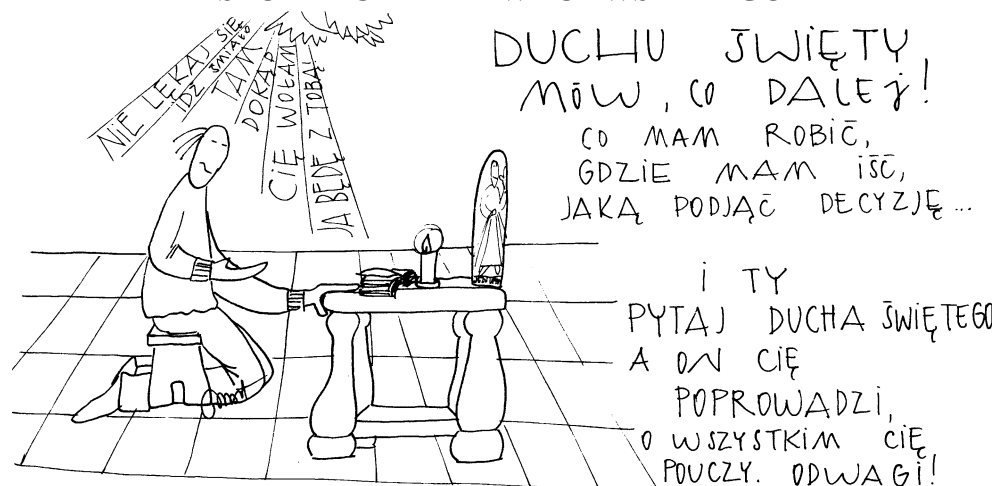 NIE LĘKAJ SIĘ
IDŹ ŚMIAŁO
TAM
DOKĄD
CIĘ WOŁAM
JA BĘDĘ Z TOBĄ
DUCHU ŚWIĘTY
MÓW, CO DALEJ!
CO MAM ROBIĆ,
GDZIE MAM IŚĆ,
JAKĄ PODJĄĆ DECYZJĘ...
I TY
PYTAJ DUCHA ŚWIĘTEGO
A ON CIĘ
POPROWADZI,
O WSZYSTKIM CIĘ
POUCZY. ODWAGI!